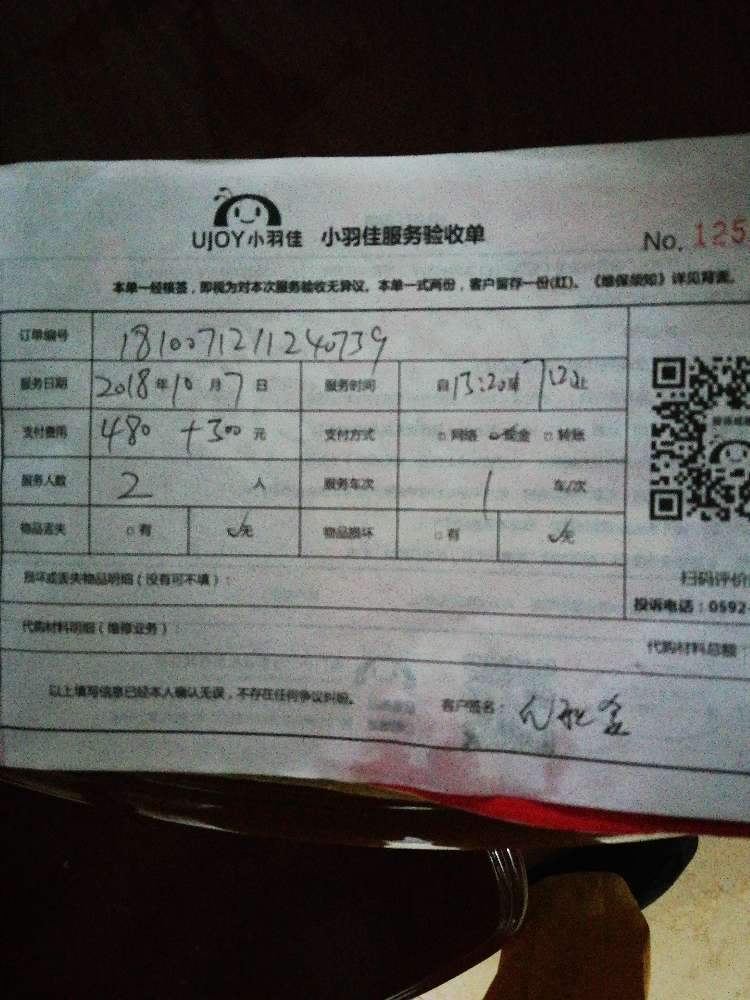 UJOY小羽佳 小羽佳服务验收单 No. 125
本单一经核签，即视为对本次服务验收无异议。本单一式两份，客户留存一份(红)。《维保须知》详见背面。
订单编号 181007121124 0739
服务日期 2018年10月7日 服务时间 自13:20
支付费用 480 +300元 支付方式 □网络 ☑现金 □转账
服务人数 2人 服务车次 1车/次
物品丢失 □有 ☑无 物品损坏 □有 ☑无
损坏或丢失物品明细（没有可不填）：
扫码评价
投诉电话：0592-
代购材料明细（维修业务）： 代购材料总额：
以上填写信息已经本人确认无误，不存在任何争议纠纷。 客户签名：